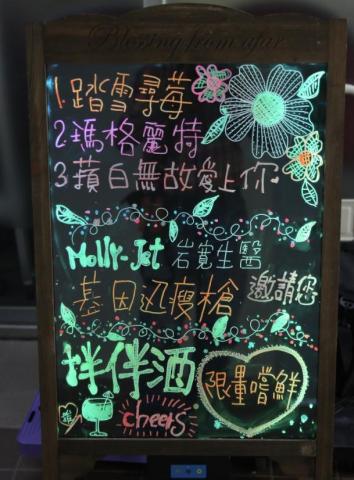 Blessing from afar
1.踏雪尋莓
2.瑪格麗特
3.蘋白無故愛上你
Molly-Jet 岩寬生醫
基因迅瘦槍 邀請您
拌伴酒
限量嚐鮮
cheers